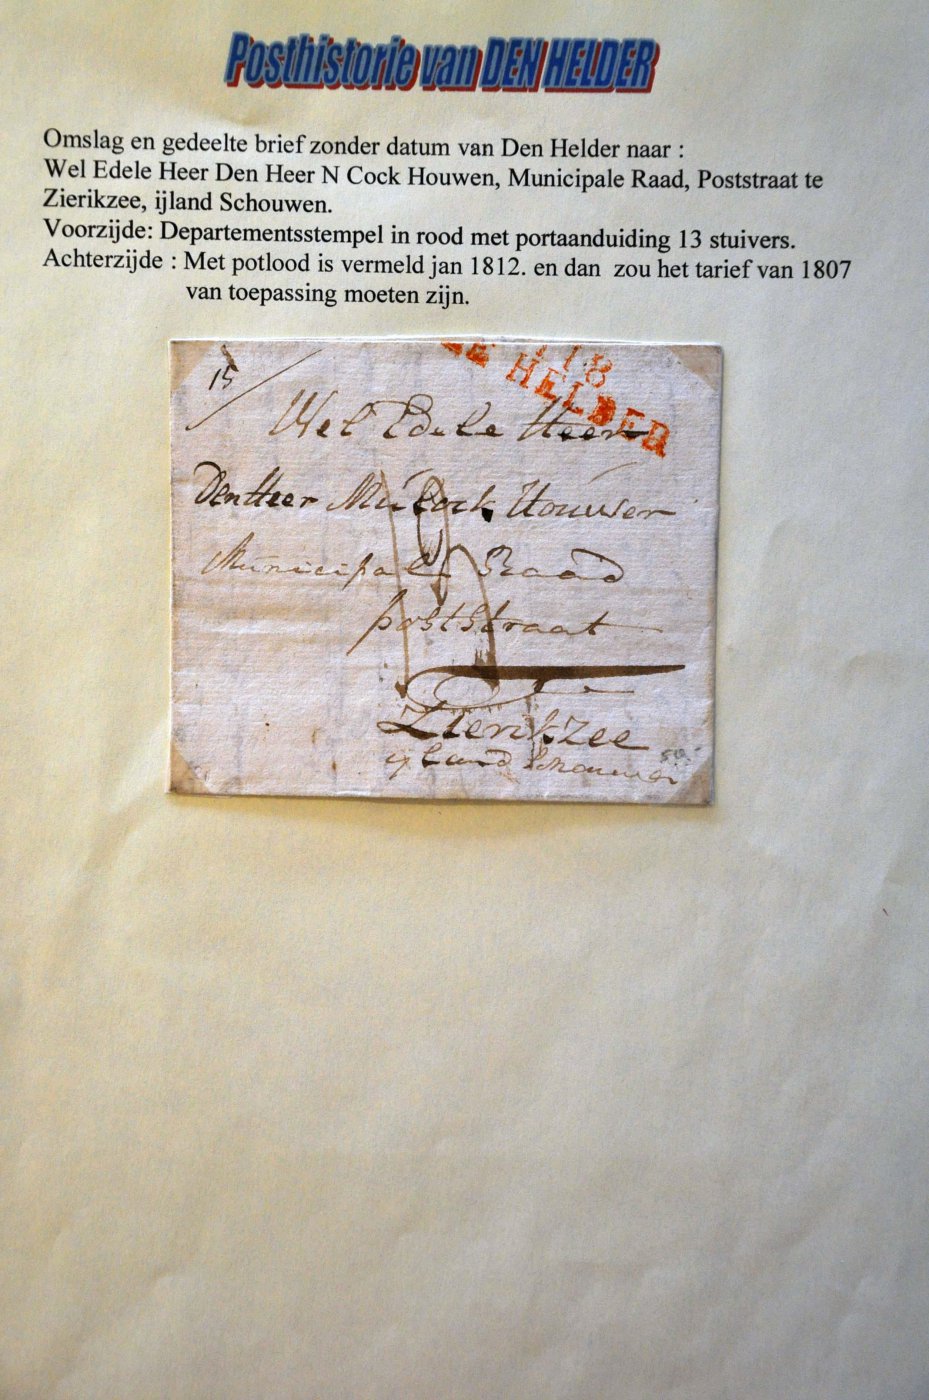 Posthistorie van DEN HELDER
Omslag en gedeelte brief zonder datum van Den Helder naar :
Wel Edele Heer Den Heer N Cock Houwen, Municipale Raad, Poststraat te
Zierikzee, ijland Schouwen.
Voorzijde: Departementsstempel in rood met portaanduiding 13 stuivers.
Achterzijde : Met potlood is vermeld jan 1812. en dan zou het tarief van 1807
van toepassing moeten zijn.
118
LE HELDER
15
Wel Edele Heer
Den Heer Cock Houwen
Municipale Raad
poststraat
Zierikzee
ijland Schouwen